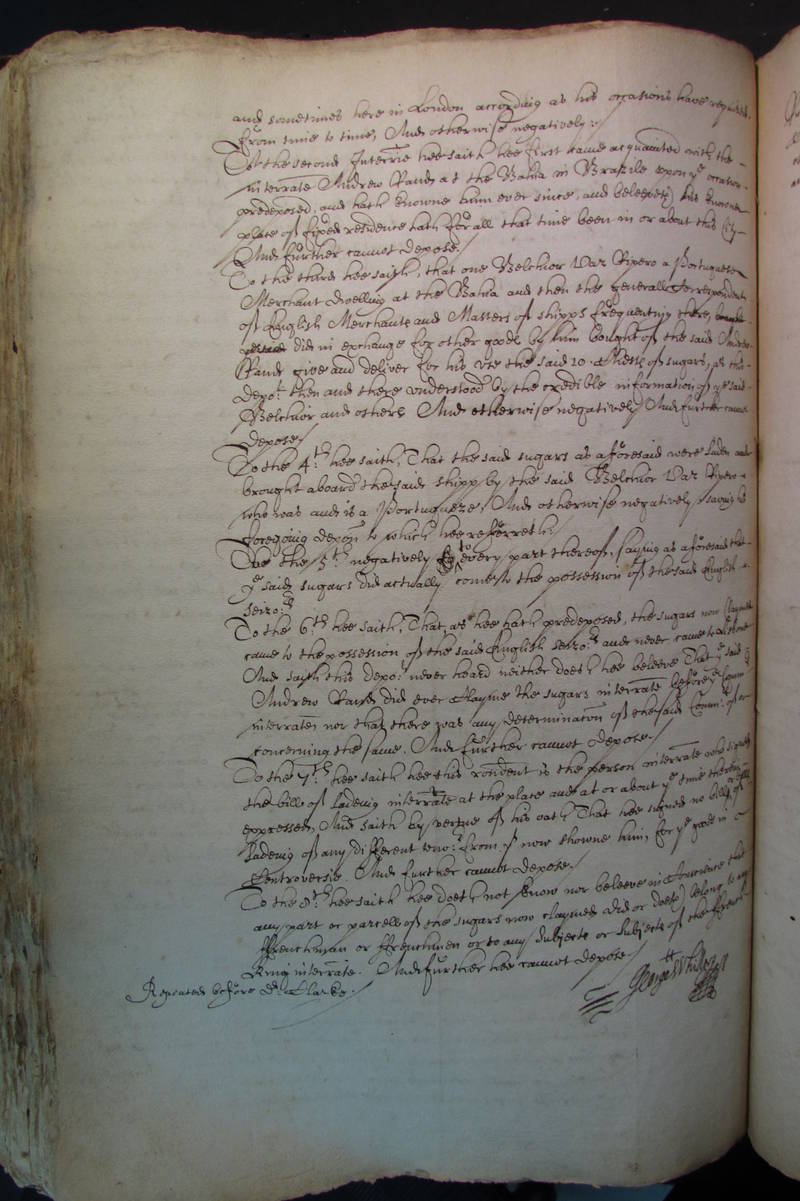 and sometimes here in London according as his occasions have required
from time to time, And otherwise negatively:/
To the second Interrie hee saith hee first came acquainted with the
interrate Andrew Rands at the Bahia in Brazile upon ye occation
predeposed, and hath knowne him ever since, and beleeveth his knowne
place of fixed residence hath for all that time been in or about this City
And further cannot depose./
To the third hee saith, that one Belchior Vaz Pipero a Portuguese
Merchant dwelling at the Bahia and then the generall Correspondent
of English Merchants and Masters of shipps frequenting there,
did in exchange for other goods by him bought of the said Andrew
Rands give and deliver for his use the said 20 Chests of sugars, as this
depot then and there understood by the credible information of ye said
Belchior and others And otherwise negatively And further cannot
depose/
To the 4th hee saith, That the said sugars as aforesaid were laden and
brought aboard the said shipp by the said Belchior Vaz Pipero
who was and is a Portugueze, And otherwise negatively saving his
foregoing deposn to which hee referreth./
To the 5th negatively to every part thereof, saying as aforesaid that
ye said sugars did actually come to the possession of the said English
seizors
To the 6th hee saith, That, as hee hath predeposed, the sugars now claymed
came to the possession of the said English seizors and never came
And saith this depot never heard neither doeth hee beleeve That ye said
Andrew Rands did ever clayme the sugars interrate before ye Commrs
interrate, nor that there was any determination of the said Commrs
concerning the same. And further cannot depose./
To the 7th hee saith hee this rondent is the person interrate who signed
the bill of Ladeing interrate at the place and at or about ye time therein
expressed, And saith by vertue of his oath, That hee signed no bill or bills of
Ladeing of any different tenor from yt now showne him, for ye goods in
Controversie. And further cannot depose./
To the 8th hee saith hee doeth not know nor beleeve in Conscience that
any part or parcell of the sugars now claymed did or doeth belong to any
Frenchman or Frenchmen or to any subjects or subjects of the French
King interrate. And further hee cannot depose/
Repeated before Dr Clarke.
George